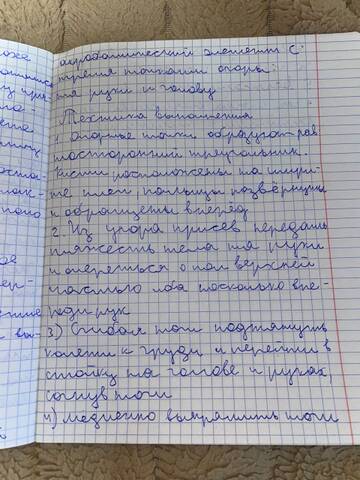 акробатический элемент с
тремя точками опоры:
на руки и голову
Техника выполнения
1. Опорные точки образуют рав
носторонний треугольник.
Кисти расположены на шири-
не плеч, пальцы развёрнуты
и обращены вперёд
2. Из упора присев передать
тяжесть тела на руки
и опереться о пол верхней
частью лба несколько впе-
реди рук
3) Сгибая ноги подтянуть
колени к груди и перейти в
стойку на голове и руках,
согнув ноги
4) медленно выпрямить ноги